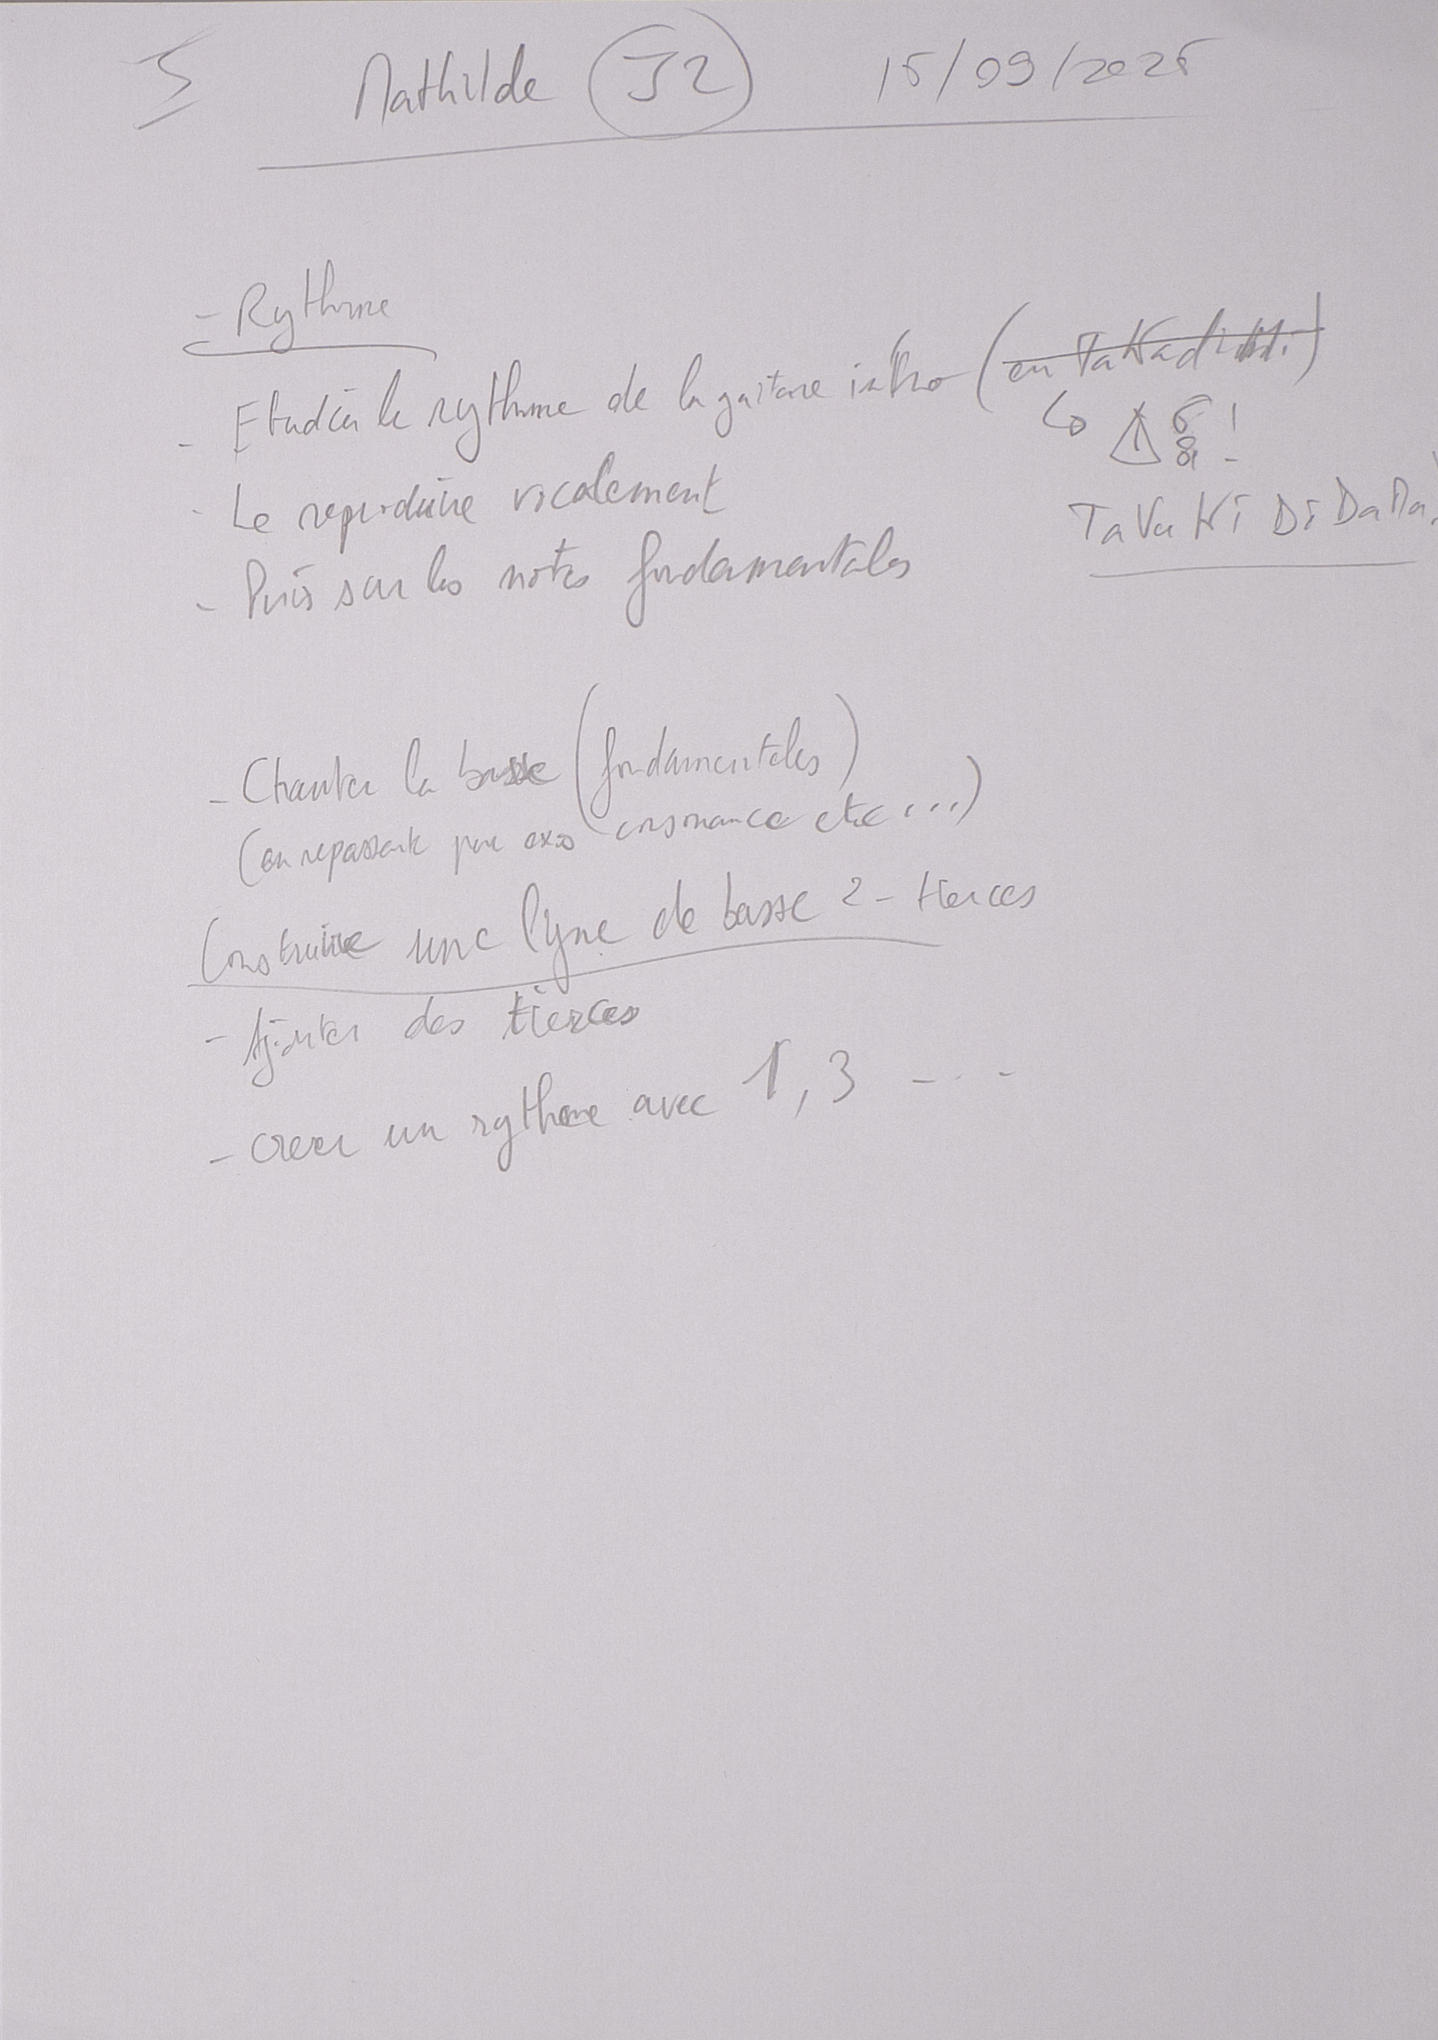 Mathilde J2 15/09/2025
- Rythme
- Etudier le rythme de la guitare intro (en Takadimi)
↳ ⚠ 6/8 !
- Le reproduire vocalement
Ta Va Ki Di Da Ma
- Puis sur les notes fondamentales
- Chanter la basse (fondamentales)
(en repassant par exo consonance etc ...)
Construire une ligne de basse 2 - tierces
- Ajouter des tierces
- Creer un rythme avec 1, 3 - - -